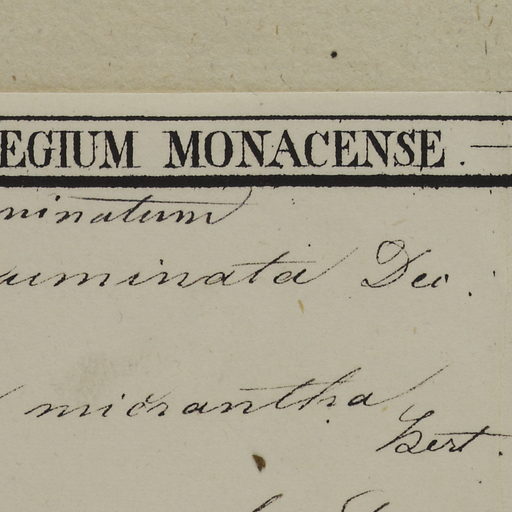 EGIUM MONACENSE.
minatum
cuminata Dec.
micrantha
hert.